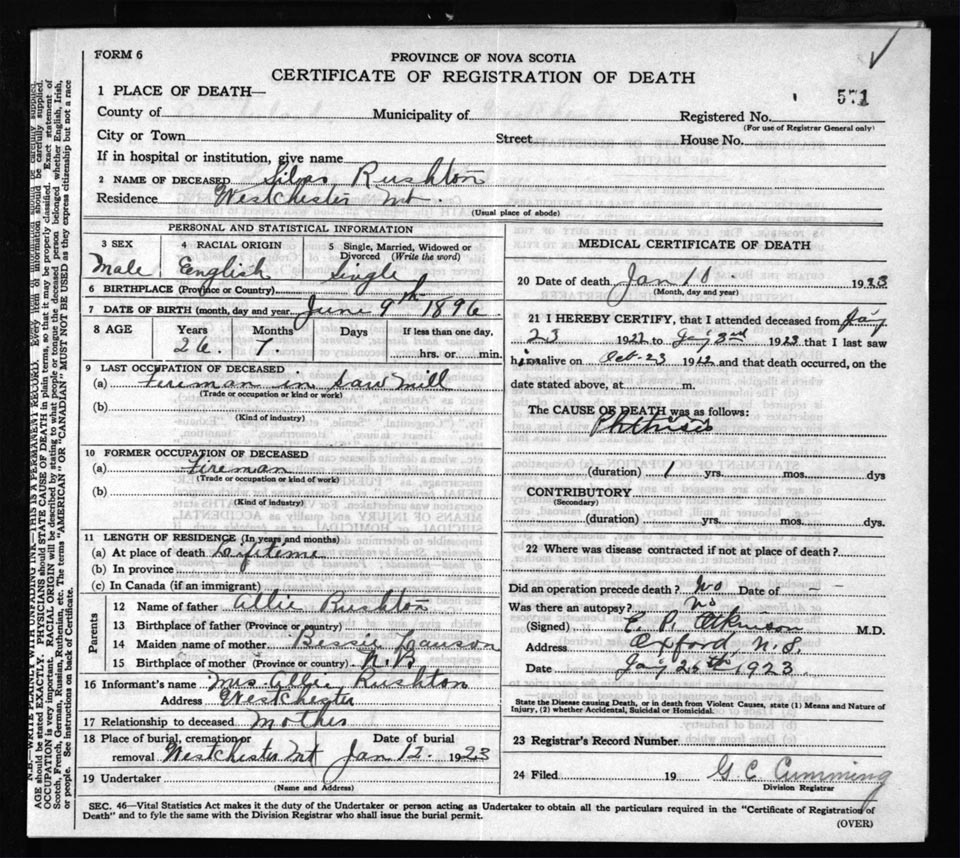 FORM 6
PROVINCE OF NOVA SCOTIA
CERTIFICATE OF REGISTRATION OF DEATH
571
1 PLACE OF DEATH—
County of Municipality of Registered No.
(For use of Registrar General only)
City or Town Street House No.
If in hospital or institution, give name
2 NAME OF DECEASED Silas Rushton
Residence Westchester Mt.
(Usual place of abode)
PERSONAL AND STATISTICAL INFORMATION
3 SEX 4 RACIAL ORIGIN 5 Single, Married, Widowed or Divorced (Write the word)
Male English Single
6 BIRTHPLACE (Province or Country)
7 DATE OF BIRTH (month, day and year) June 9th 1896
8 AGE Years Months Days If less than one day,
26 7 hrs. or min.
9 LAST OCCUPATION OF DECEASED
(a) Fireman in Saw Mill
(Trade or occupation or kind or work)
(b)
(Kind of industry)
10 FORMER OCCUPATION OF DECEASED
(a) Fireman
(Trade or occupation or kind of work)
(b)
(Kind of industry)
11 LENGTH OF RESIDENCE (In years and months)
(a) At place of death Lifetime
(b) In province
(c) In Canada (if an immigrant)
Parents
12 Name of father Allie Rushton
13 Birthplace of father (Province or country)
14 Maiden name of mother Bessie Lawson
15 Birthplace of mother (Province or country) N.B
16 Informant's name Mrs Allie Rushton
Address Westchester
17 Relationship to deceased Mother
18 Place of burial, cremation or removal Westchester Mt Date of burial Jan 12. 1923
19 Undertaker
(Name and Address)
MEDICAL CERTIFICATE OF DEATH
20 Date of death Jan 10 1923
(Month, day and year)
21 I HEREBY CERTIFY, that I attended deceased from
23 1922 to 3rd 1923 that I last saw
him alive on Oct-23 1922 and that death occurred, on the
date stated above, at m.
The CAUSE OF DEATH was as follows:
Phthisis
(duration) 1 yrs. mos. dys
CONTRIBUTORY
(Secondary)
(duration) yrs. mos. dys.
22 Where was disease contracted if not at place of death?
Did an operation precede death? No Date of –
Was there an autopsy? no
(Signed) Atkinson M.D.
Address Oxford, N.S.
Date 26th 1923
State the Disease causing Death, or in death from Violent Causes, state (1) Means and Nature of Injury, (2) whether Accidental, Suicidal or Homicidal.
23 Registrar's Record Number
24 Filed 19 G. C. Cumming
Division Registrar
SEC. 46—Vital Statistics Act makes it the duty of the Undertaker or person acting as Undertaker to obtain all the particulars required in the "Certificate of Registration of
Death" and to fyle the same with the Division Registrar who shall issue the burial permit.
(OVER)
N.B.—WRITE PLAINLY WITH UNFADING INK—THIS IS A PERMANENT RECORD. Every item of information should be carefully supplied.
AGE should be stated EXACTLY. PHYSICIANS should STATE CAUSE OF DEATH in plain terms, so that it may be properly classified. Exact statement of
OCCUPATION is very important. RACIAL ORIGIN will be described by stating to what people or tongue the deceased person belonged whether English, Irish,
Scotch, French, German, Russian, Ruthenian, etc. The terms "AMERICAN" OR "CANADIAN" MUST NOT BE USED as they express citizenship but not a race
or people. See instructions on back of Certificate.